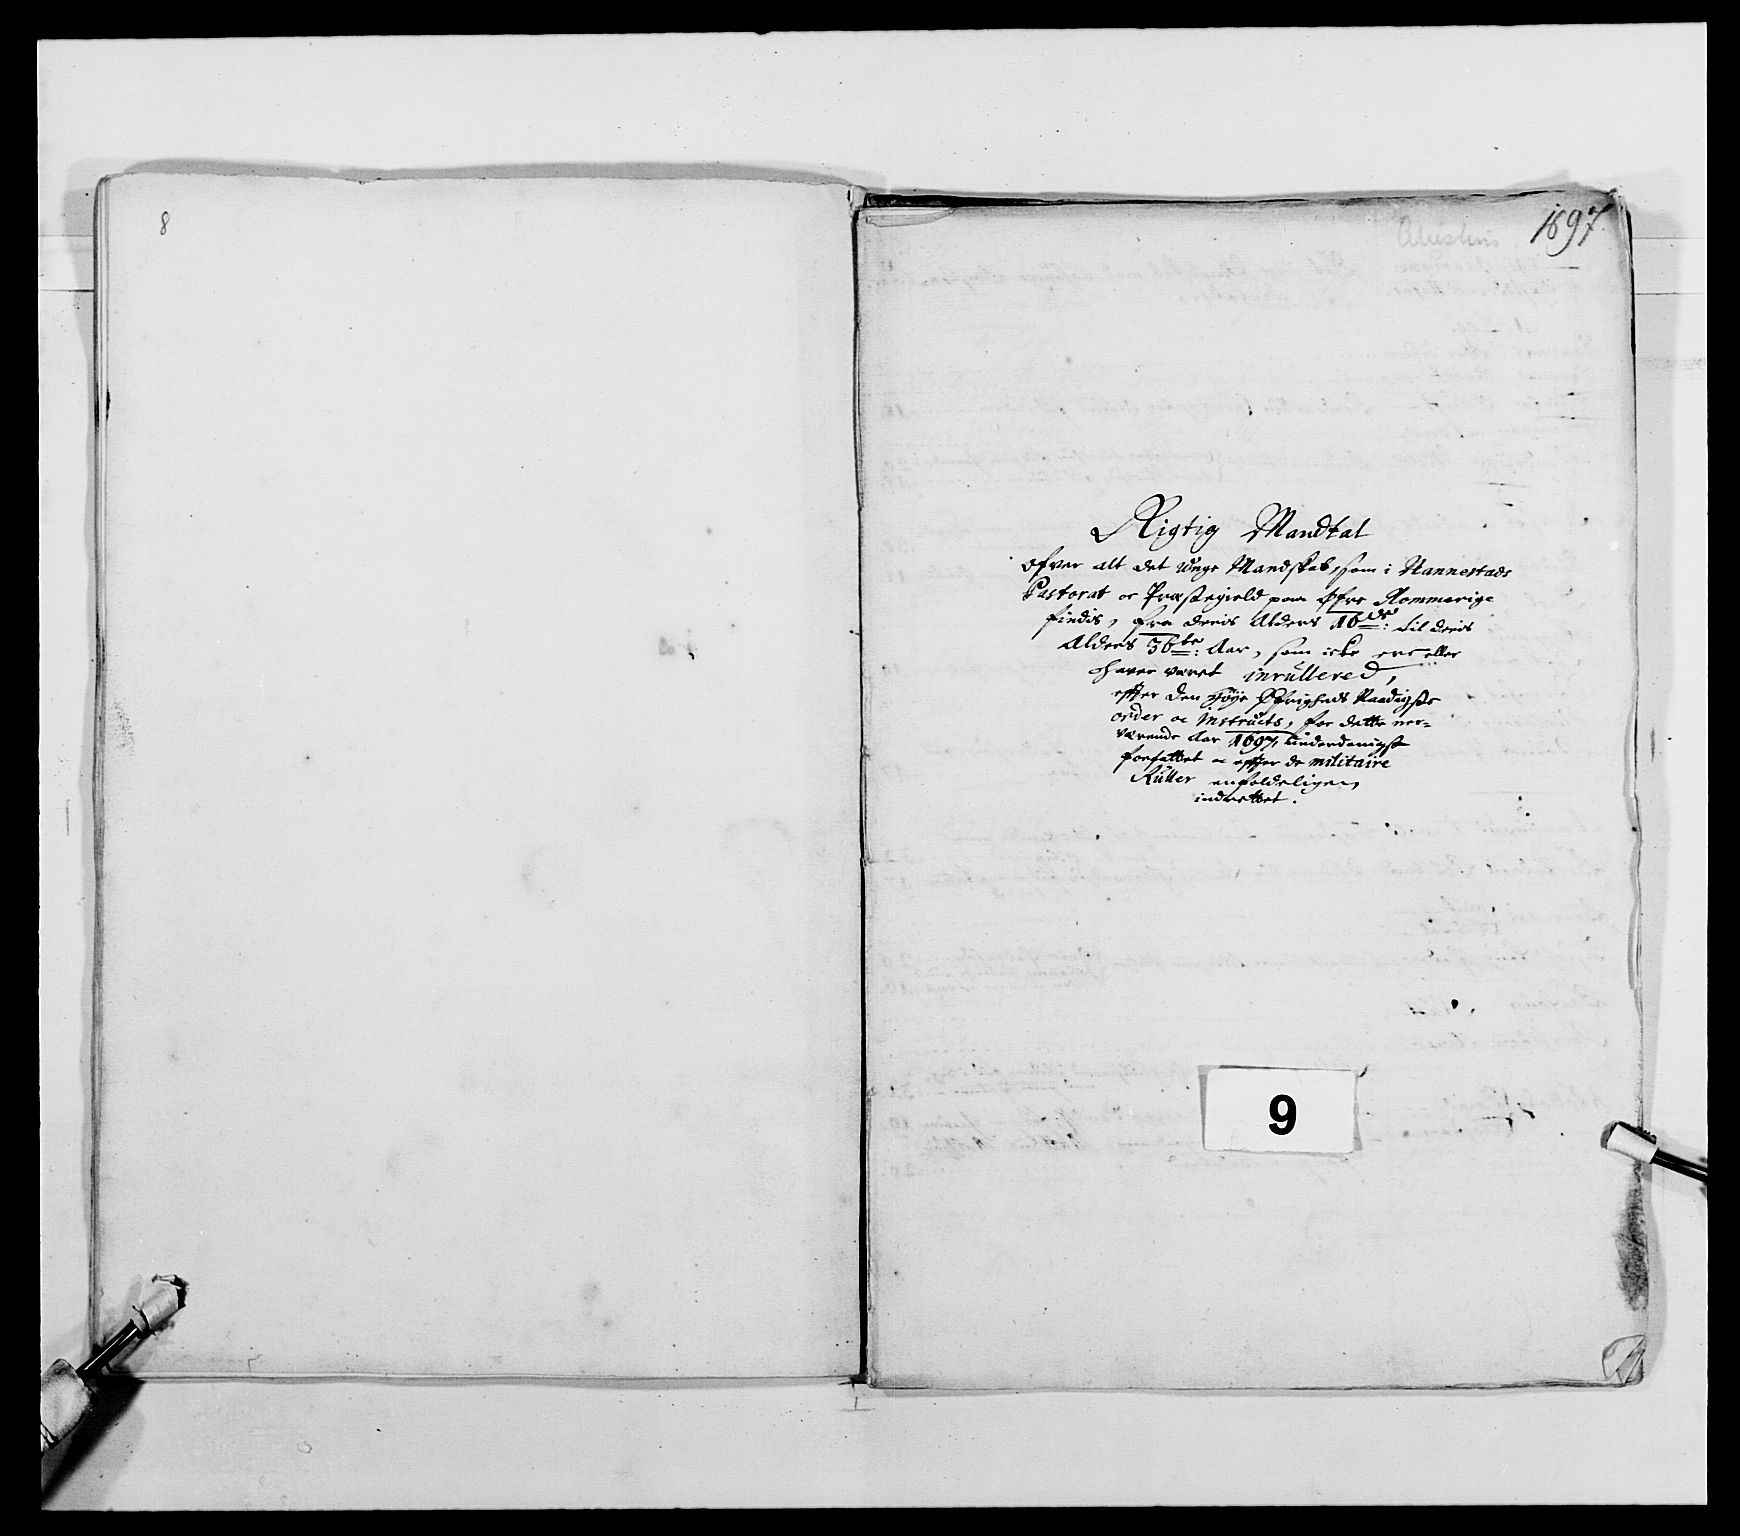 8
1697.
Rigtig Mandtal
Ofver alt det unge Mandskab, som i Nannestads
Pastorat oc Præstegield paa Øfre Rommerige
findis, fra deris Alders 16de: til deris
Alders 36te: Aar, som icke ere eller
hafver været inrullered,
effter den høye Øfrigheds Naadigste
order oc instructs, for dette ner-
værende Aar 1697, underdanigst
forfattet oc effter de militaire
Ruller enfoldeligen,
indrettet.
9